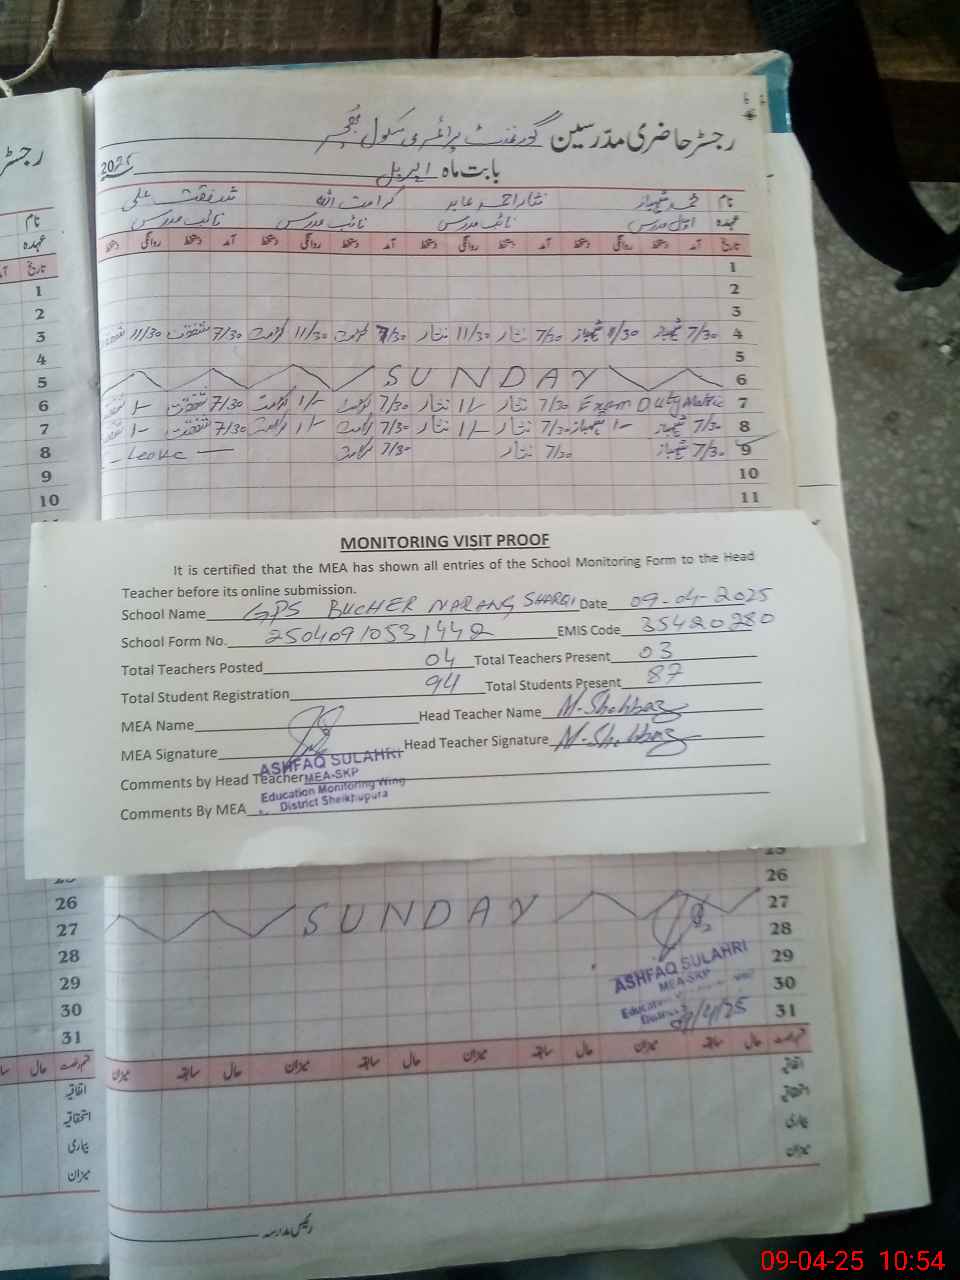 رجسٹر حاضری مدرسین گورنمنٹ پرائمری سکول بُچر
بابت ماہ اپریل 2025
نام محمد شہباز نثار احمد عابد کرامت اللہ شفقت علی
عہدہ اول مدرس نائب مدرس نائب مدرس نائب مدرس
تاریخ آمد دستخط روانگی دستخط آمد دستخط روانگی دستخط آمد دستخط روانگی دستخط آمد دستخط روانگی دستخط
1
2
3
4 7/30 شہباز 11/30 شہباز 7/30 نثار 11/30 نثار 7/30 کرامت 11/30 کرامت 7/30 شفقت 11/30 شفقت
5
6 SUNDAY
7 Exam Duty Matric 7/30 نثار 1/- نثار 7/30 کرامت 1/- کرامت 7/30 شفقت 1/- شفقت
8 7/30 شہباز 1/- شہباز 7/30 نثار 1/- نثار 7/30 کرامت 1/- کرامت 7/30 شفقت 1/- شفقت
9 7/30 شہباز 7/30 نثار 7/30 کرامت — Leave —
10
11
MONITORING VISIT PROOF
It is certified that the MEA has shown all entries of the School Monitoring Form to the Head
Teacher before its online submission.
School Name GPS BUCHER NARANG SHARQI Date 09-04-2025
School Form No. 25040910531442 EMIS Code 35420280
Total Teachers Posted 04 Total Teachers Present 03
Total Student Registration 94 Total Students Present 87
MEA Name Head Teacher Name M-Shahbaz
MEA Signature Head Teacher Signature M-Shahbaz
ASHFAQ SULAHRI
Comments by Head Teacher MEA-SKP
Education Monitoring Wing
District Sheikhupura
Comments By MEA
25
26
27 SUNDAY
28
29 ASHFAQ SULAHRI
MEA-SKP
30
31 09/4/25
قسم رخصت حال سابقہ میزان حال سابقہ میزان حال سابقہ میزان حال سابقہ میزان
اتفاقیہ
استحقاقیہ
بیماری
میزان
رئیس مدرسہ
رجسٹر
نام
عہدہ
تاریخ
1
2
3
4
5
6
7
8
9
10
26
27
28
29
30
31
قسم رخصت حال
اتفاقیہ
استحقاقیہ
بیماری
میزان
09-04-25 10:54